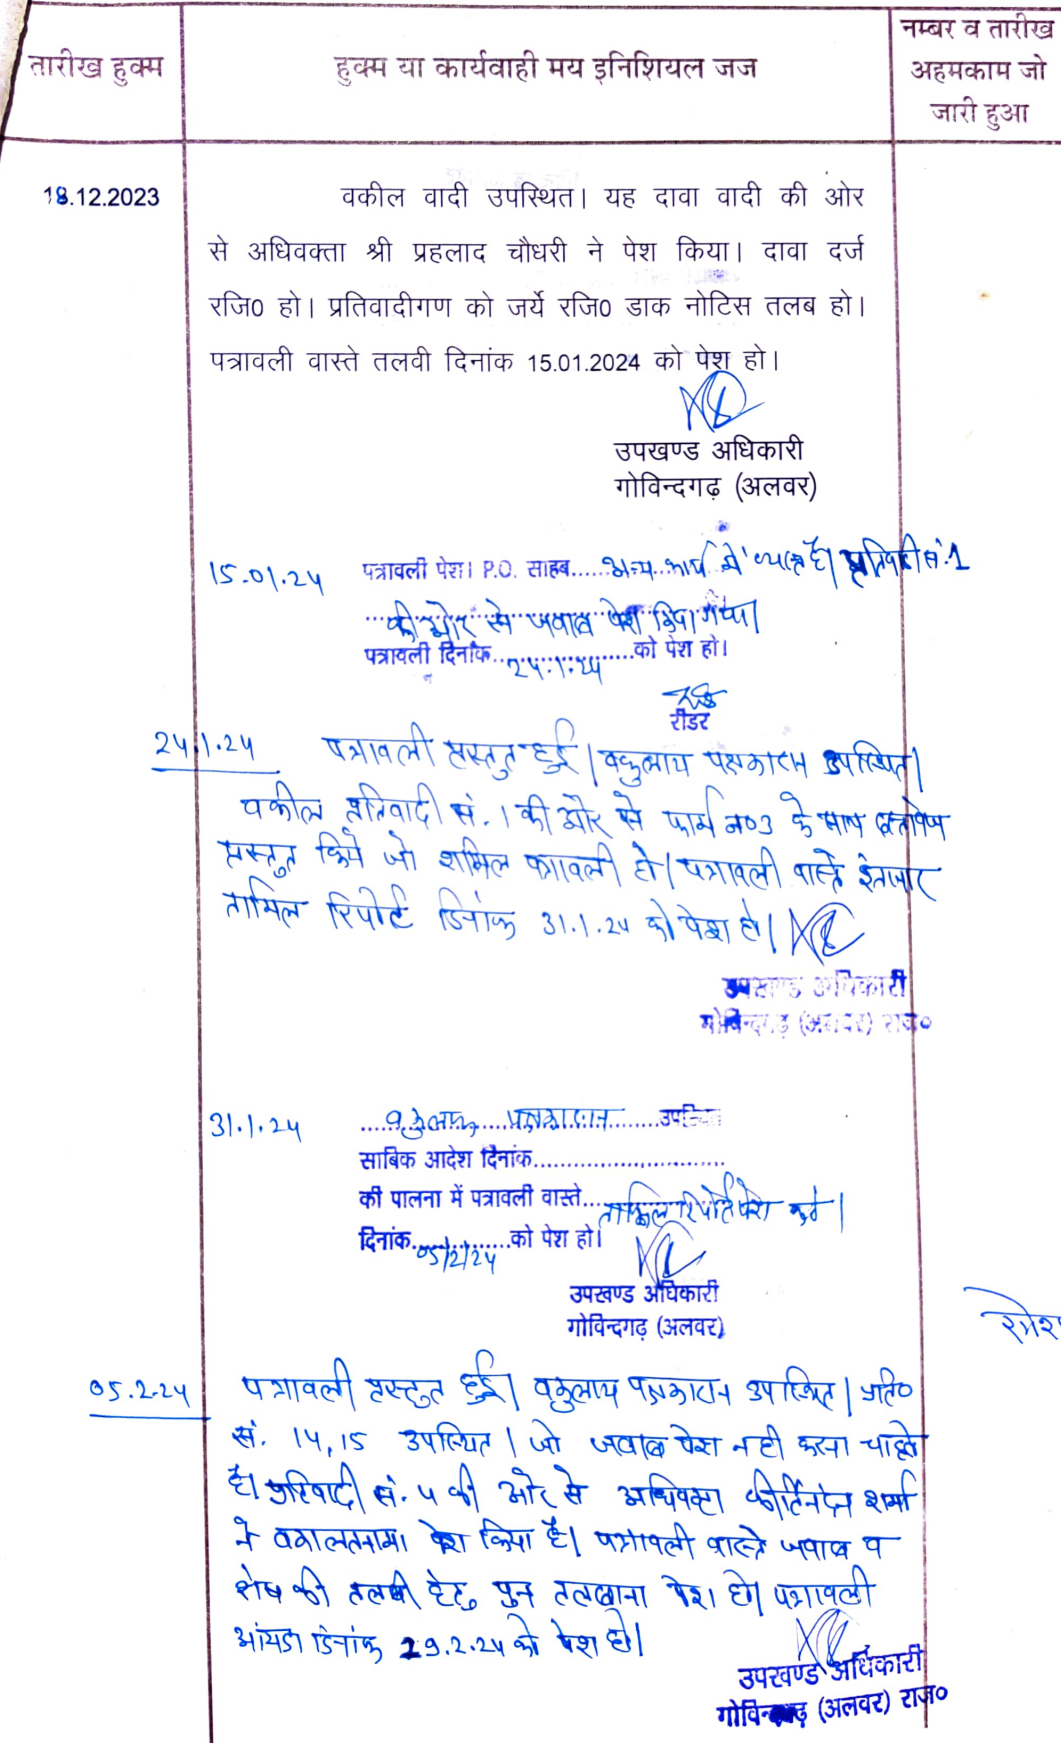 तारीख हुक्म
हुक्म या कार्यवाही मय इनिशियल जज
नम्बर व तारीख
अहमकाम जो
जारी हुआ
18.12.2023
वकील वादी उपस्थित। यह दावा वादी की ओर
से अधिवक्ता श्री प्रहलाद चौधरी ने पेश किया। दावा दर्ज
रजि0 हो। प्रतिवादीगण को जर्ये रजि0 डाक नोटिस तलब हो।
पत्रावली वास्ते तलवी दिनांक 15.01.2024 को पेश हो।
उपखण्ड अधिकारी
गोविन्दगढ़ (अलवर)
15.01.24 पत्रावली पेश। P.O. साहब......अन्य कार्य में व्यस्त है। प्रतिवादी सं.1
की ओर से जवाब पेश किया गया।
पत्रावली दिनांक..24.1.24..को पेश हो।
रीडर
24.1.24 पत्रावली प्रस्तुत हुई। वकुलाय पक्षकारान उपस्थित।
वकील प्रतिवादी सं. 1 की और से फार्म न0 3 के साथ दस्तावेज
प्रस्तुत किये जो शामिल पत्रावली हो। पत्रावली वास्ते इंतजार
तामिल रिपोर्ट दिनांक 31.1.24 को पेश हो।
उपखण्ड अधिकारी
गोविन्दगढ़ (अलवर) राज०
31.1.24 .....वकुलाय.....पक्षकारान.....उपस्थित
साबिक आदेश दिनांक..............................
की पालना में पत्रावली वास्ते....तामिल रिपोर्ट पेश करे।
दिनांक..05/2/24..को पेश हो।
उपखण्ड अधिकारी
गोविन्दगढ़ (अलवर)
05.2.24 पत्रावली प्रस्तुत हुई। वकुलाय पक्षकारान उपस्थित। प्रति०
सं. 14,15 उपस्थित। जो जवाब पेश नही करना चाहते
है। प्रतिवादी सं. 4 की ओर से अधिवक्ता शर्मा
ने वकालतनामा पेश किया है। पत्रावली वास्ते जवाब व
शेष की तलबी हेतु पुन तलबाना पेश हो। पत्रावली
आंयदा दिनांक 29.2.24 को पेश हो।
उपखण्ड अधिकारी
गोविन्दगढ़ (अलवर) राज०